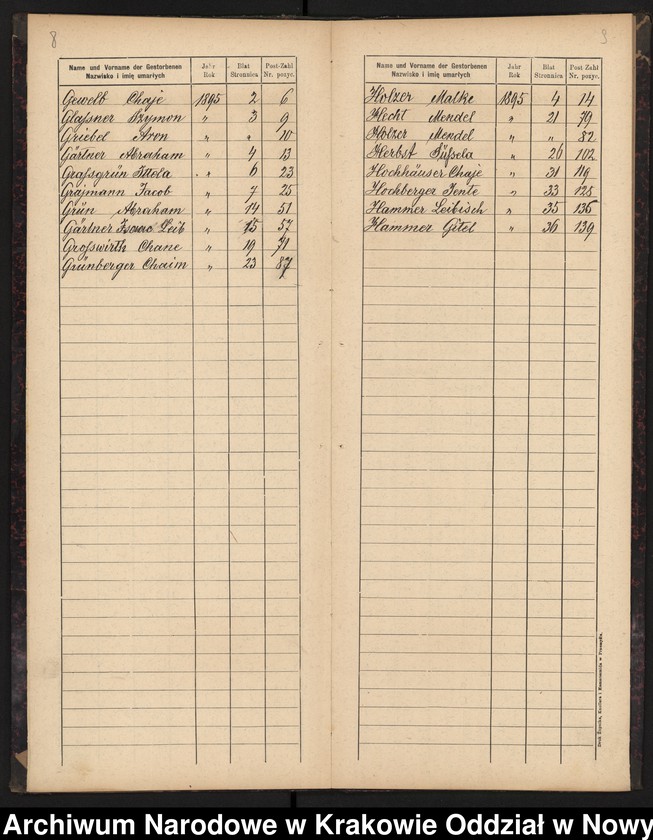 8
Name und Vorname der Gestorbenen Jahr Blat Post-Zahl
Nazwisko i imię umarłych Rok Stronnica Nr. pozyc.
Gewelb Chaje 1895 2 6
Glassner Szymon " 3 9
Griebel Aron " " 10
Gärtner Abraham " 4 13
Grassgrün Ittela " 6 23
Grajmann Jacob " 7 25
Grün Abraham " 14 51
Gärtner Isaac Leib " 15 57
Grosswirth Chane " 19 71
Grünberger Chaim " 23 87
9
Name und Vorname der Gestorbenen Jahr Blat Post Zahl
Nazwisko i imię umarłych Rok Stronnica Nr. pozyc.
Holzer Malke 1895 4 14
Hecht Mendel " 21 79
Holzer Mendel " " 82
Herbst " 26 102
Hochhäuser Chaje " 31 119
Hochberger Jente " 33 125
Hammer Leibisch " 35 135
Hammer Gitel " 36 139
Archiwum Narodowe w Krakowie Oddział w Nowy